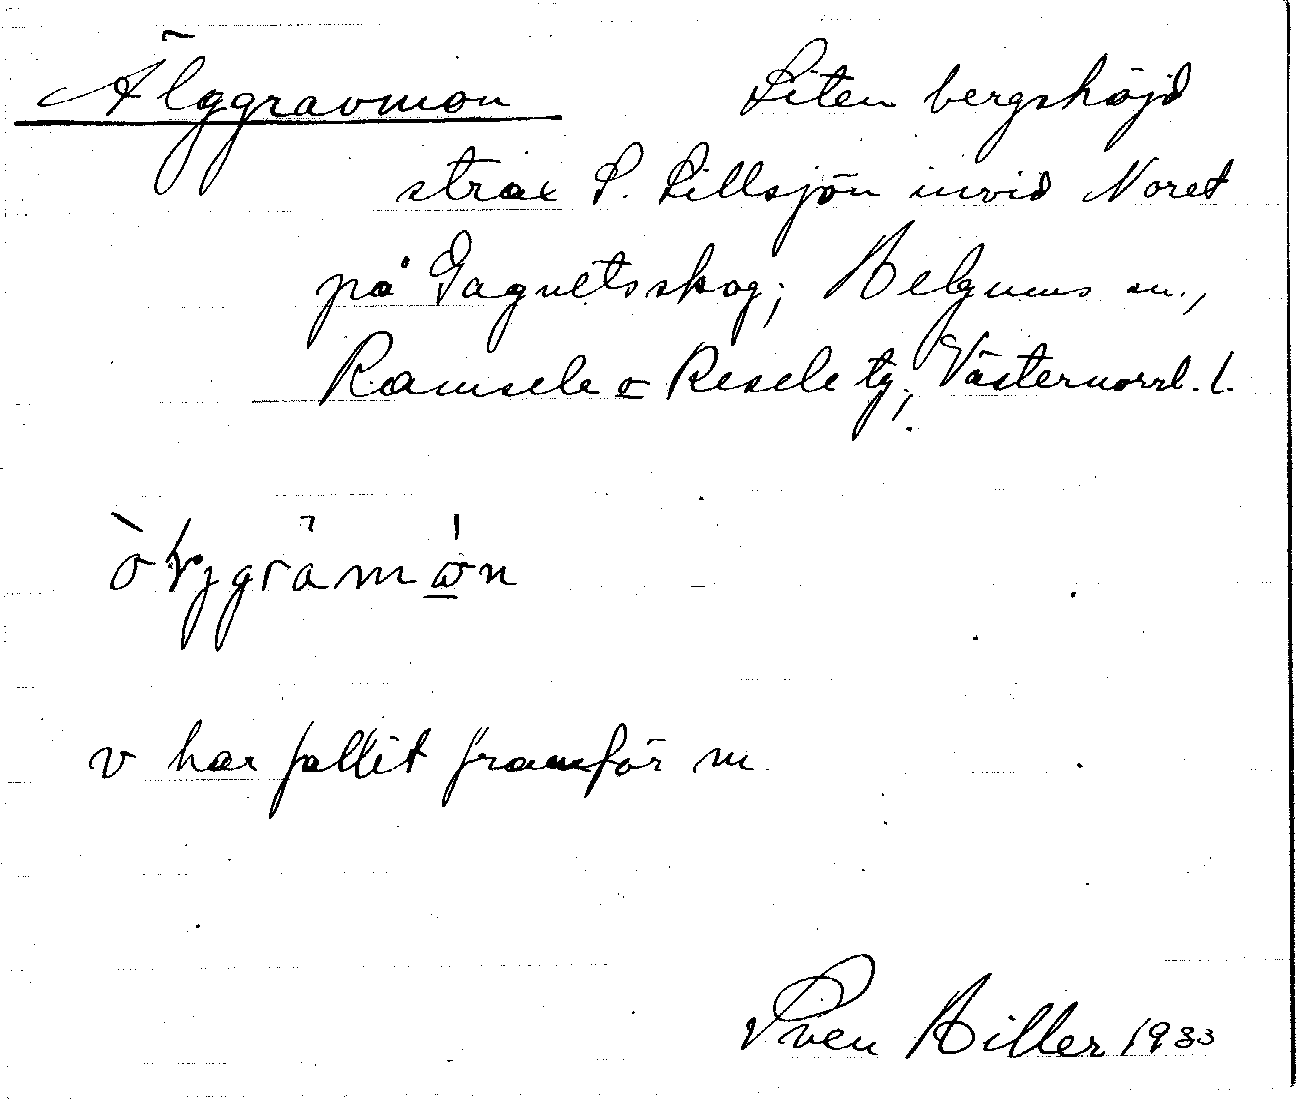 Älggravmon Liten bergshöjd
strax S. Lillsjön invid Noret
på Gagnetsskog; Helgums sn.,
Ramsele o Resele tg; Västernorrl. l.
v har fallit framför m
Sven Hiller 1933